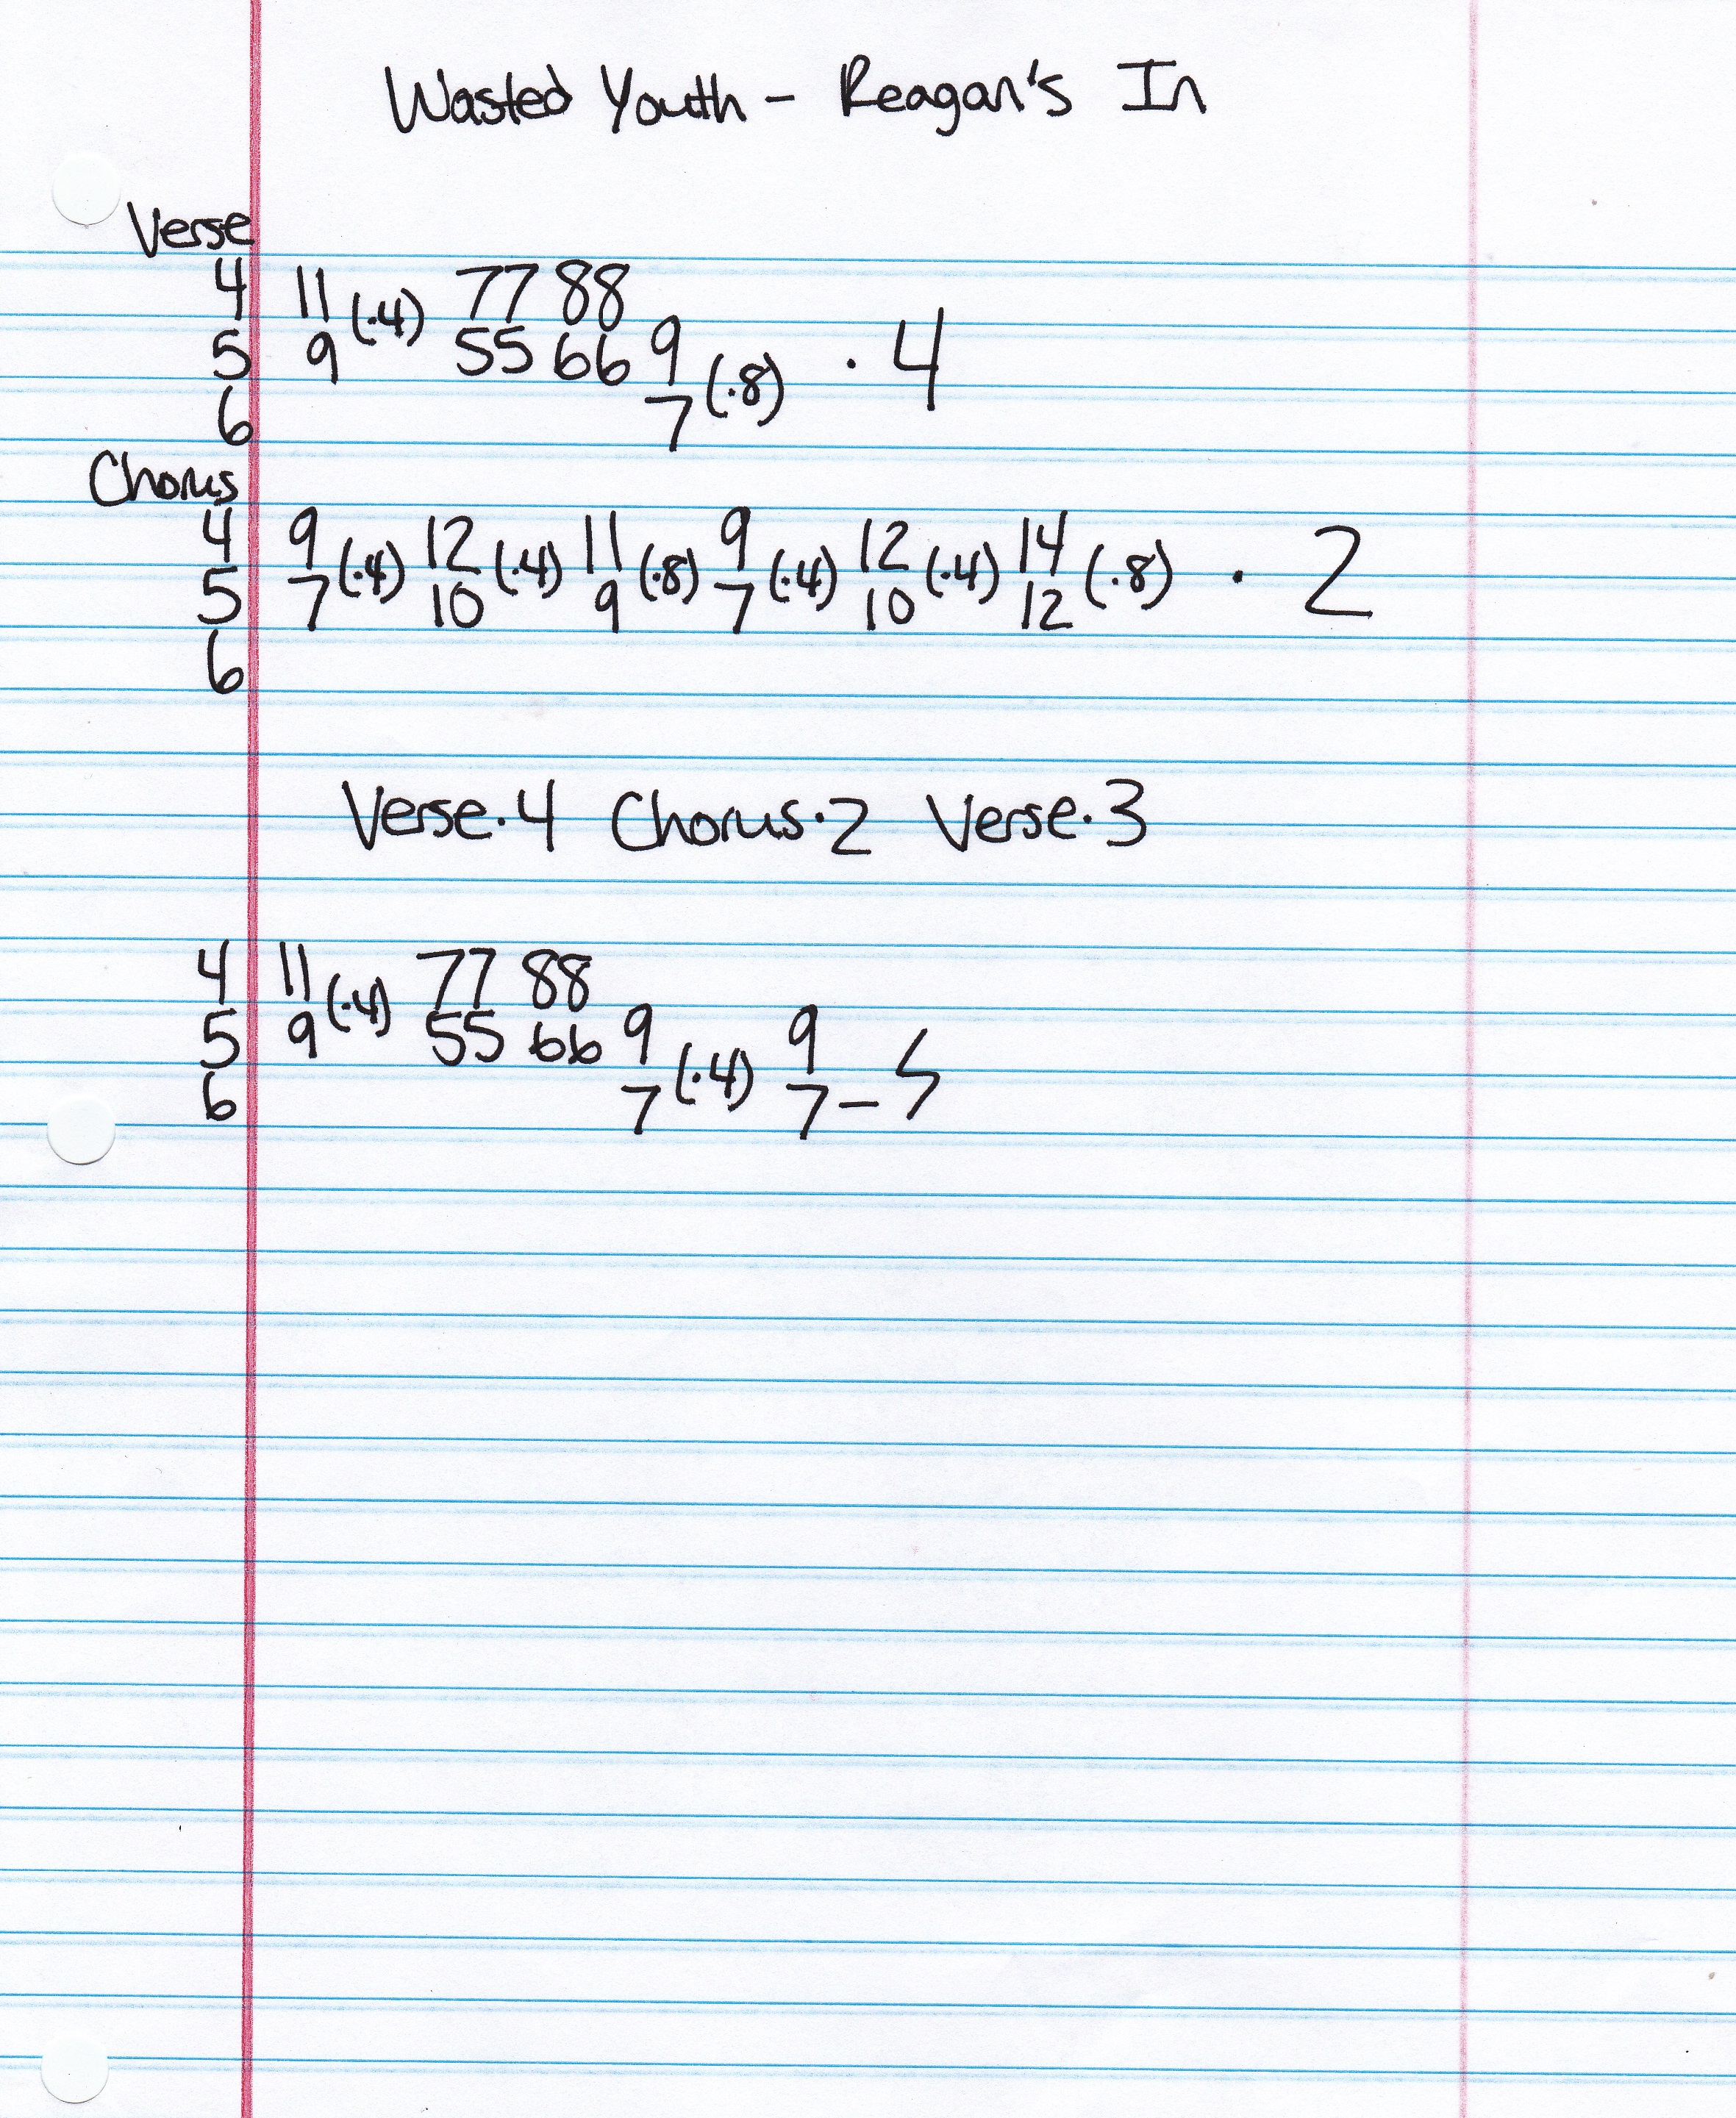 Wasted Youth - Reagan's In
Verse
4 11 (·4) 77 88
5 9 55 66 9 (·8) · 4
6 7
Chorus
4 9 (·4) 12 (·4) 11 (·8) 9 (·4) 12 (·4) 14 (·8) · 2
5 7 10 9 7 10 12
6
Verse·4 Chorus·2 Verse·3
4 11 (·4) 77 88
5 9 55 66 9 (·4) 9
6 7 7 –